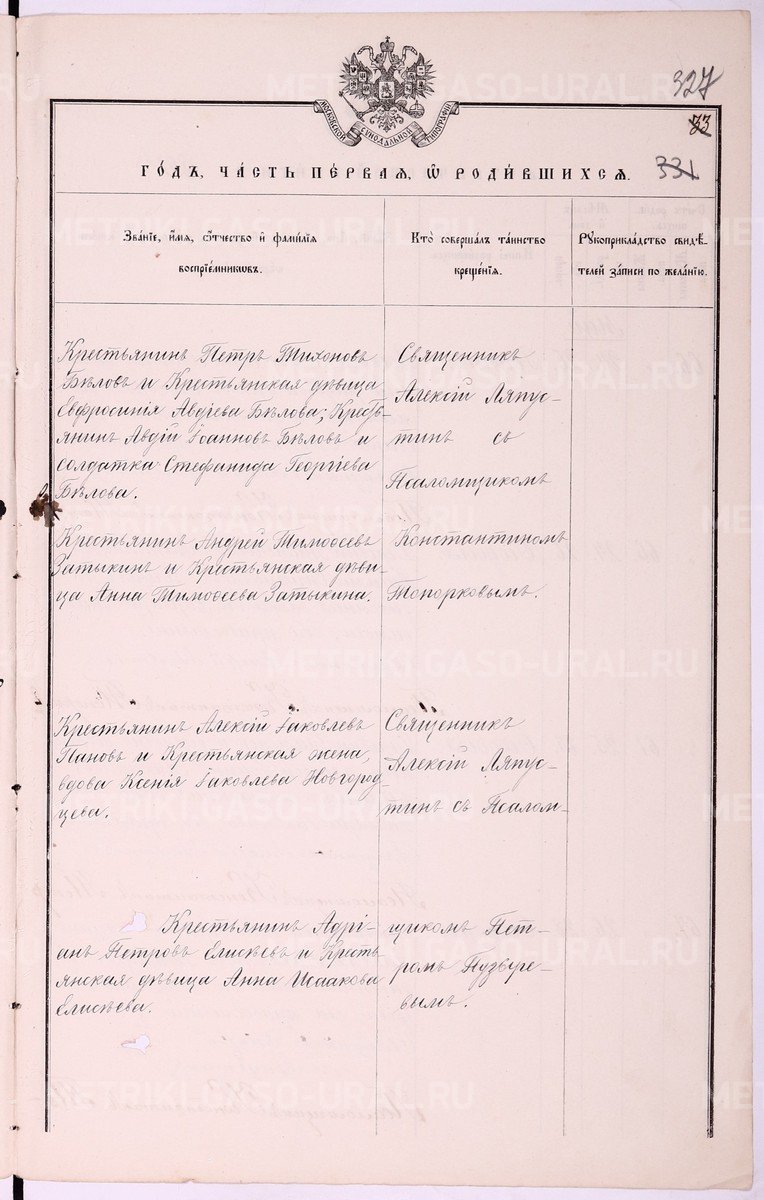 327
33
331
МОСКОВСКОЙ СѴНОДАЛЬНОЙ ТИПОГРАФІИ
ГО́ДЪ, ЧА́СТЬ ПЕ́РВАЯ, Ѡ РОДИ́ВШИХСЯ.
Зва́нїе, и҆́мя, ѻ҆́тчество и҆ фами́лїя
воспрїе́мникѡвъ.
Кто̀ соверша́лъ та́инство
креще́нїя.
Рꙋкоприкла́дство свидѣ́-
телей за́писи по жела́нїю.
Крестьянинъ Петръ Тихоновъ
Бѣловъ и Крестьянская дѣвица
Евфросинія Авдіева Бѣлова; Кресть-
янинъ Авдій Іоанновъ Бѣловъ и
солдатка Стефанида Георгіева
Бѣлова.
Священникъ
Алексій Ляпус-
тинъ съ
Псаломщикомъ
Крестьянинъ Андрей Тимоѳеевъ
Затыкинъ и Крестьянская дѣви-
ца Анна Тимоѳеева Затыкина.
Константиномъ
Топорковымъ.
Крестьянинъ Алексій Іаковлевъ
Пановъ и Крестьянская жена,
вдова Ксенія Іаковлева Новгород-
цева.
Священникъ
Алексій Ляпус-
тинъ съ Псалом-
Крестьянинъ Адрі-
анъ Петровъ Елисѣевъ и Кресть-
янская дѣвица Анна Исаакова
Елисѣева.
щикомъ Пет-
ромъ Пузыре-
вымъ.
METRIKI.GASO-URAL.RU